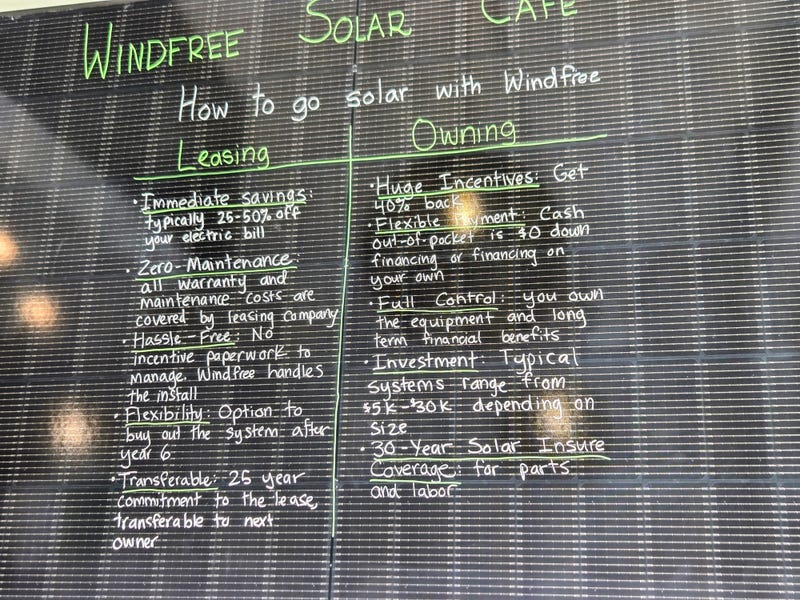 WINDFREE SOLAR CAFE
How to go solar with Windfree
Leasing
• Immediate savings:
typically 25-50% off
your electric bill
• Zero-Maintenance:
all warranty and
maintenance costs are
covered by leasing company
• Hassle-Free: No
incentive paperwork to
manage. Windfree handles
the install
• Flexibility: Option to
buy out the system after
year 6
• Transferable: 25 year
commitment to the lease,
transferable to next
owner
Owning
• Huge Incentives: Get
40% back
• Flexible Payment: Cash
out-of-pocket is $0 down
financing or financing on
your own
• Full Control: you own
the equipment and long
term financial benefits
• Investment: Typical
systems range from
$5k-$30k depending on
size
• 30-Year Solar Insure
Coverage: for parts
and labor